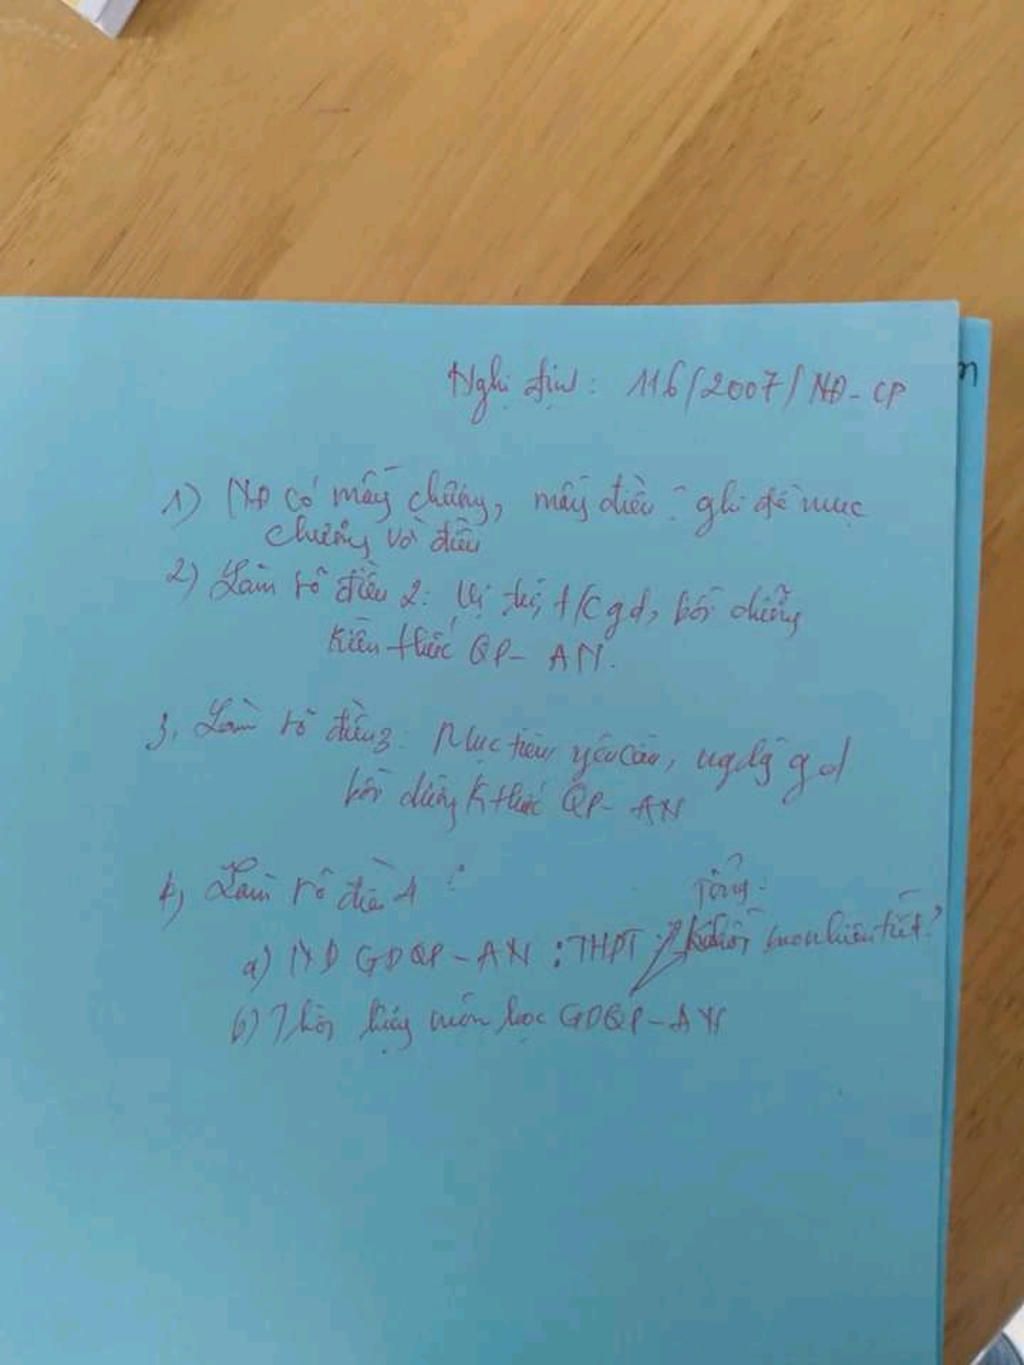 Nghị định: 116/2007/NĐ-CP
1) NĐ có mấy chương, mấy điều? ghi đề mục
chương và điều
2) Làm rõ điều 2: Vị trí, t/c gd, bồi dưỡng
kiến thức QP-AN.
3, Làm rõ điều 3: Mục tiêu, yêu cầu, gd
bồi dưỡng K thức QP-AN
4, Làm rõ điều 4:
a) ND GDQP-AN: THPT
Tổng
bao nhiêu tiết?
b) Thời môn học GDQP-AN